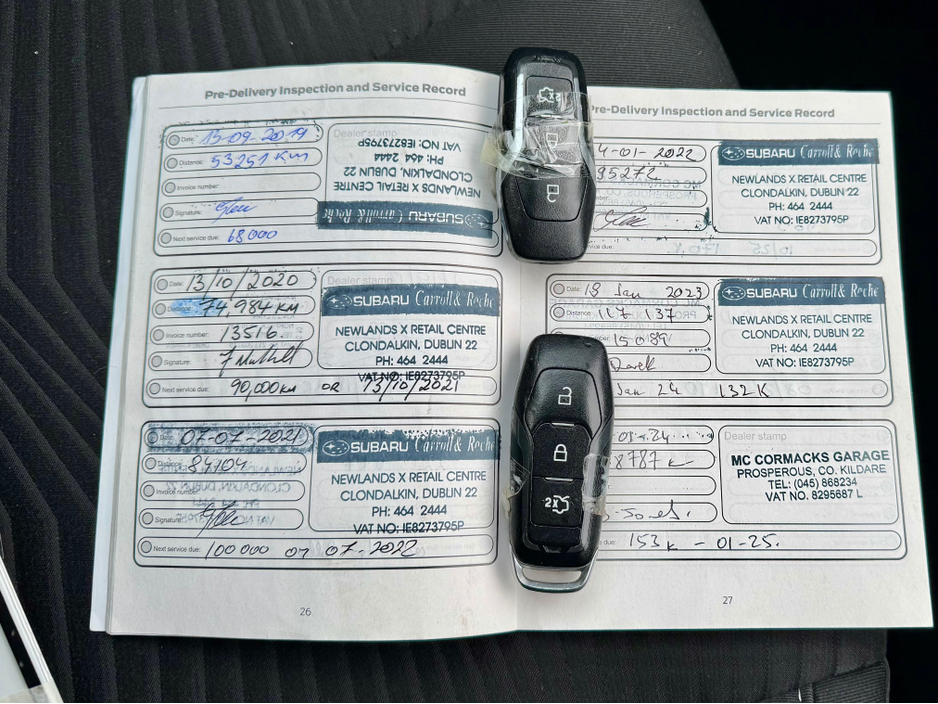 Pre-Delivery Inspection and Service Record
Date: 13-09-2019
Distance: 53251 KM
Invoice number:
Signature:
Next service due: 68000
Dealer stamp
SUBARU Carroll & Roche
NEWLANDS X RETAIL CENTRE
CLONDALKIN, DUBLIN 22
PH: 464 2444
VAT NO: IE8273795P
Date: 13/10/2020
Distance: 74,984 KM
Invoice number: 13516.
Signature:
Next service due: 90,000km OR 13/10/2021
Dealer stamp
SUBARU Carroll & Roche
NEWLANDS X RETAIL CENTRE
CLONDALKIN, DUBLIN 22
PH: 464 2444
VAT NO: IE8273795P
Date: 07-07-2021
Distance: 84104
Invoice number:
Signature:
Next service due: 100 000 07 07-2022
SUBARU Carroll & Roche
NEWLANDS X RETAIL CENTRE
CLONDALKIN, DUBLIN 22
PH: 464 2444
VAT NO: IE8273795P
26
Pre-Delivery Inspection and Service Record
4-01-2022
95272
service due:
SUBARU Carroll & Roche
NEWLANDS X RETAIL CENTRE
CLONDALKIN, DUBLIN 22
PH: 464 2444
VAT NO: IE8273795P
Date: 18 Jan 2023
Distance: 117 137
15089
Derek
Jan 24 132K
SUBARU Carroll & Roche
NEWLANDS X RETAIL CENTRE
CLONDALKIN, DUBLIN 22
PH: 464 2444
VAT NO: IE8273795P
01-24
8787
due: 153k - 01-25.
Dealer stamp
MC CORMACKS GARAGE
PROSPEROUS, CO. KILDARE
TEL: (045) 868234
VAT NO. 8295687 L
27
2X
2X